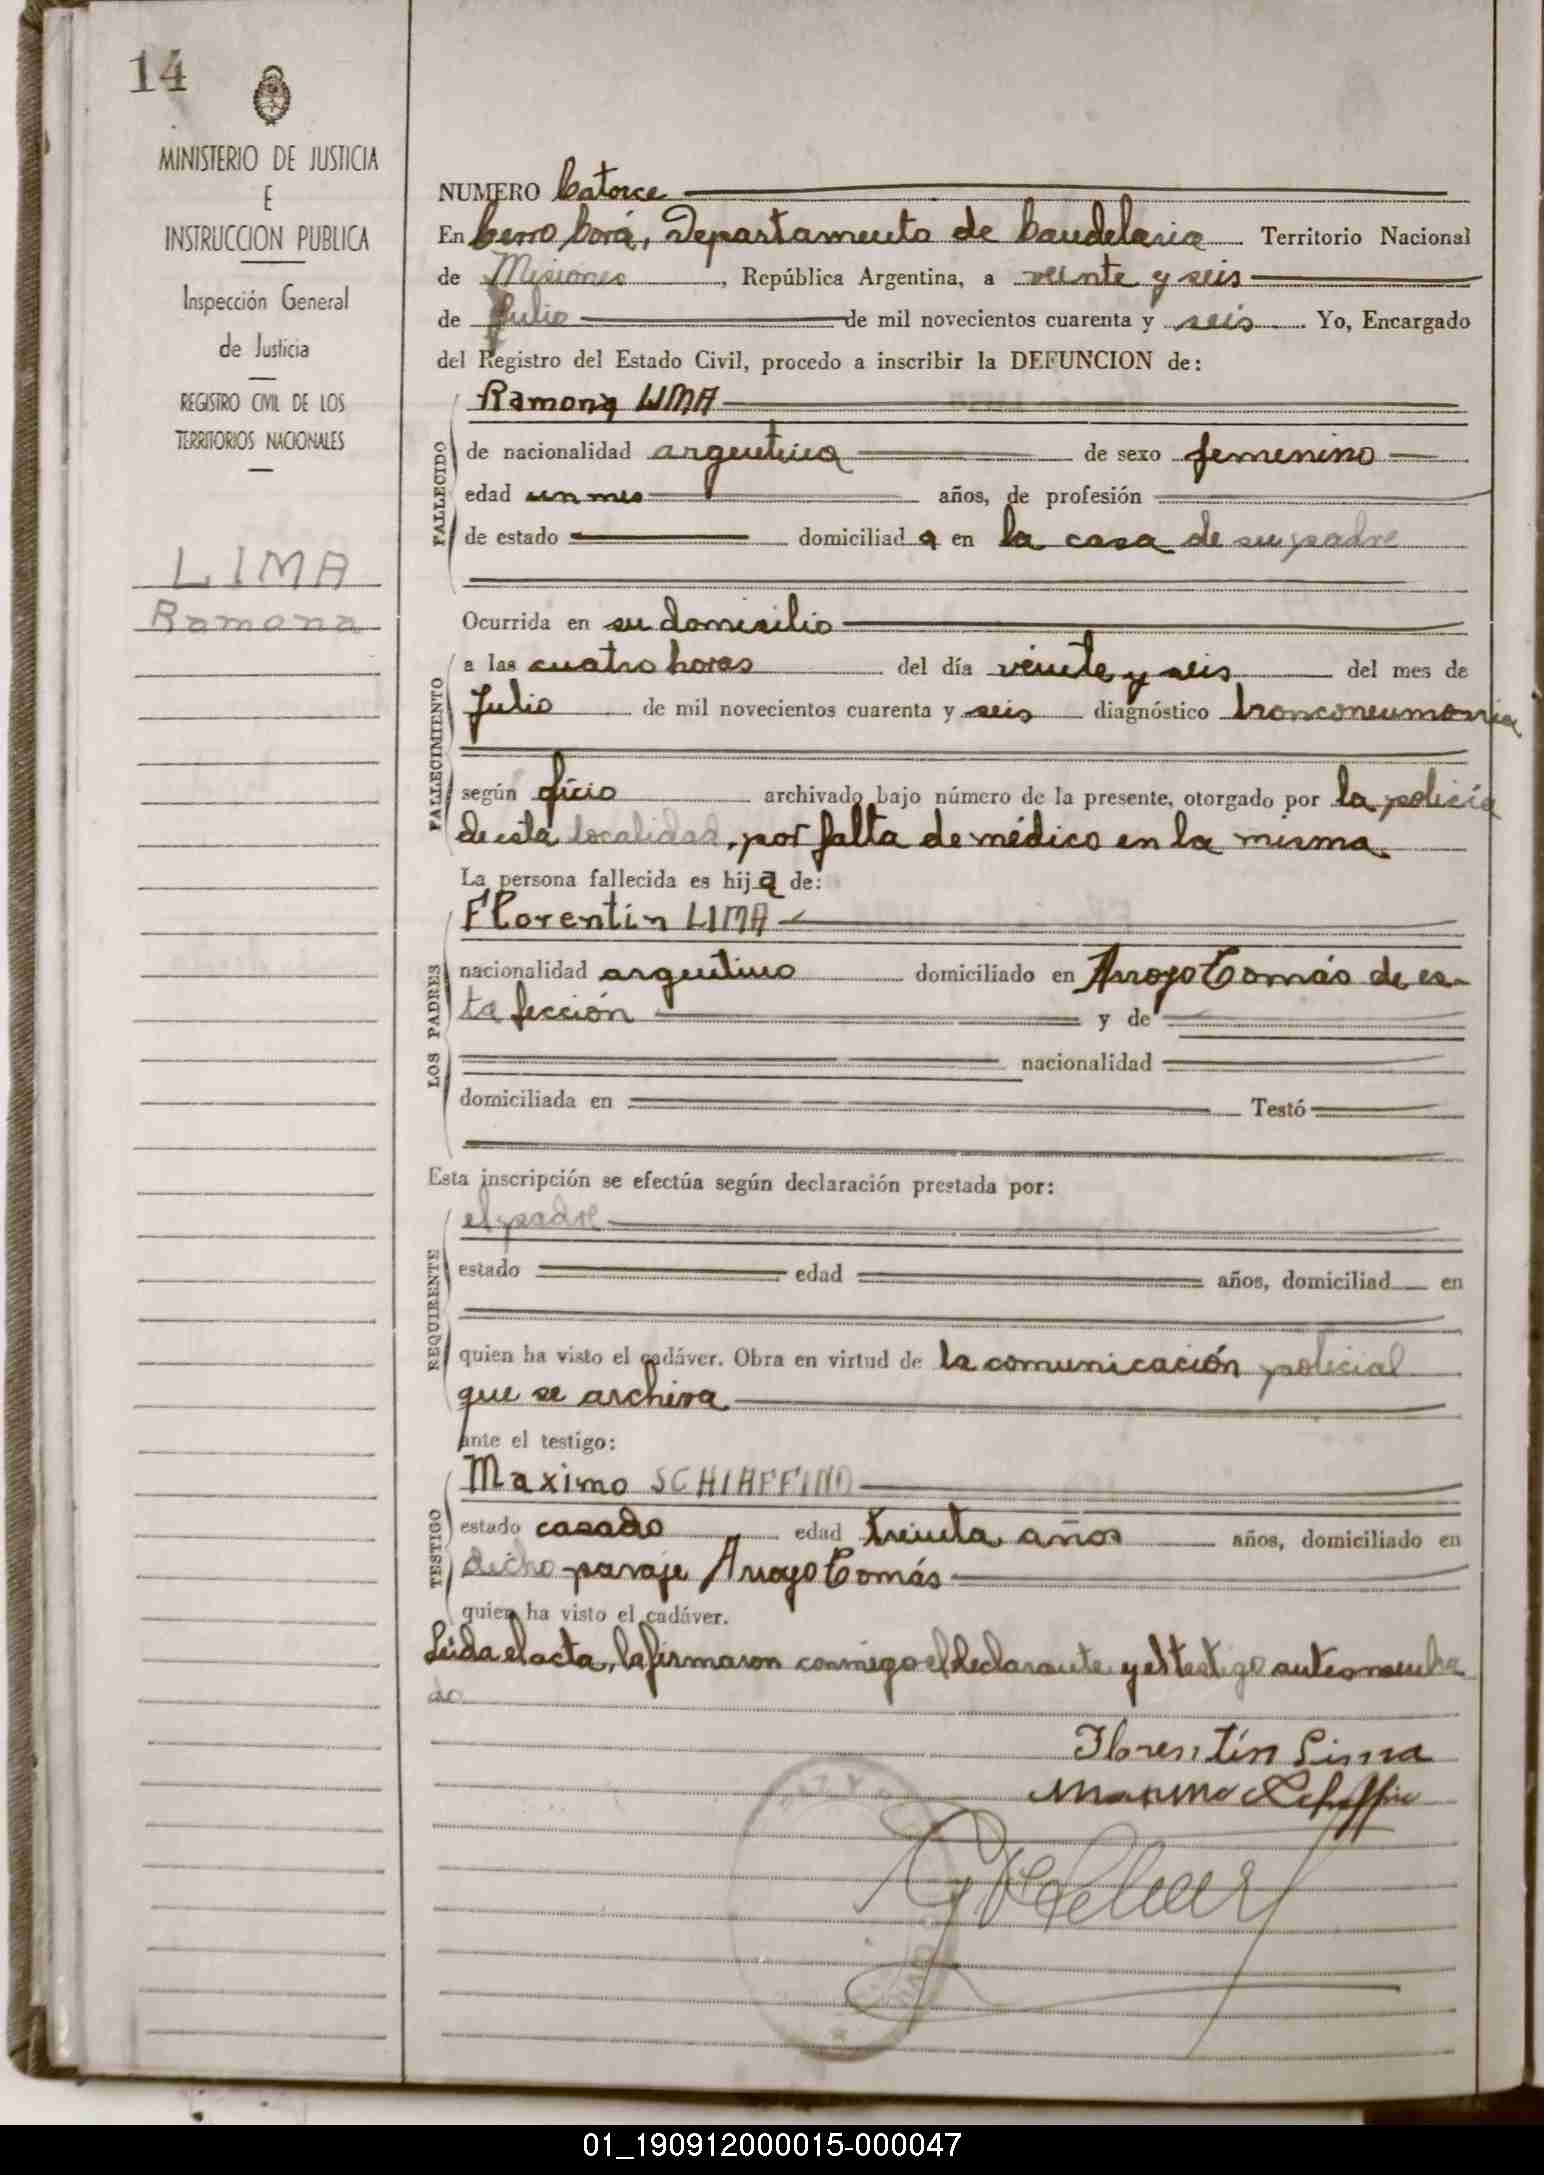 14
MINISTERIO DE JUSTICIA
E
INSTRUCCION PUBLICA
Inspección General
de Justicia
REGISTRO CIVIL DE LOS
TERRITORIOS NACIONALES
LIMA
Ramona
NUMERO Catorce
En Cerro Corá, Departamento de Candelaria Territorio Nacional
de Misiones, República Argentina, a veinte y seis
de Julio de mil novecientos cuarenta y seis. Yo, Encargado
del Registro del Estado Civil, procedo a inscribir la DEFUNCION de:
Ramona LIMA
FALLECIDO
de nacionalidad argentina de sexo femenino
edad un mes años, de profesión
de estado domiciliad a en la casa de su padre
Ocurrida en su domicilio
FALLECIMIENTO
a las cuatro horas del día veinte y seis del mes de
Julio de mil novecientos cuarenta y seis diagnóstico bronconeumonia
según oficio archivado bajo número de la presente, otorgado por la policía
de esta localidad, por falta de médico en la misma.
La persona fallecida es hija de:
LOS PADRES
Florentin LIMA
nacionalidad argentino domiciliado en Arroyo Tomás de es-
ta sección y de
nacionalidad
domiciliada en Testó
Esta inscripción se efectúa según declaración prestada por:
REQUIRENTE
el padre
estado edad años, domiciliad en
quien ha visto el cadáver. Obra en virtud de la comunicación policial
que se archiva
ante el testigo:
TESTIGO
Maximo SCHIAFFINO
estado casado edad treinta años años, domiciliado en
dicho paraje Arroyo Tomás
quien ha visto el cadáver.
Leida el acta, la firmaron conmigo el declarante y el testigo antes nombra
do
Florentín Lima
Maximo
01_190912000015-000047